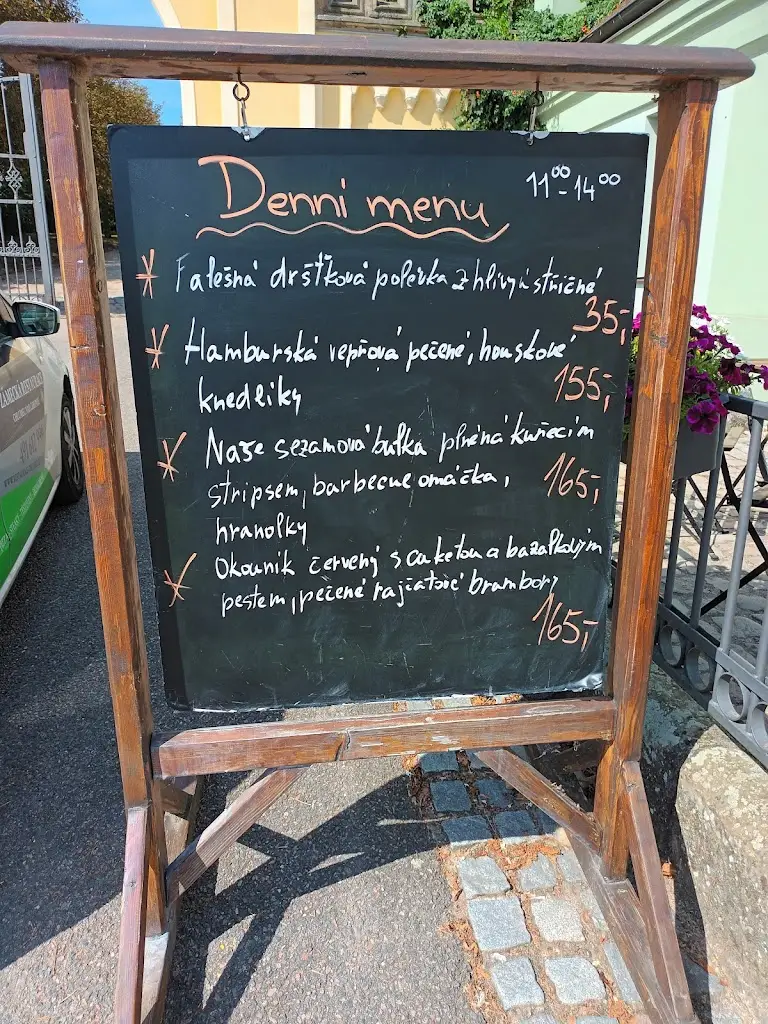 Denní menu
11⁰⁰-14⁰⁰
Falešná dršťková polévka z hlívy ústřičné
35,-
Hamburská vepřová pečeně, houskové
knedlíky
155,-
Naše sezamová bulka plněná kuřecím
stripsem, barbecue omáčka,
165,-
hranolky
Okouník červený s cuketou a bazalkovým
pestem, pečené rajčatové brambory
165,-
ZÁMECKÁ RESTAURACE